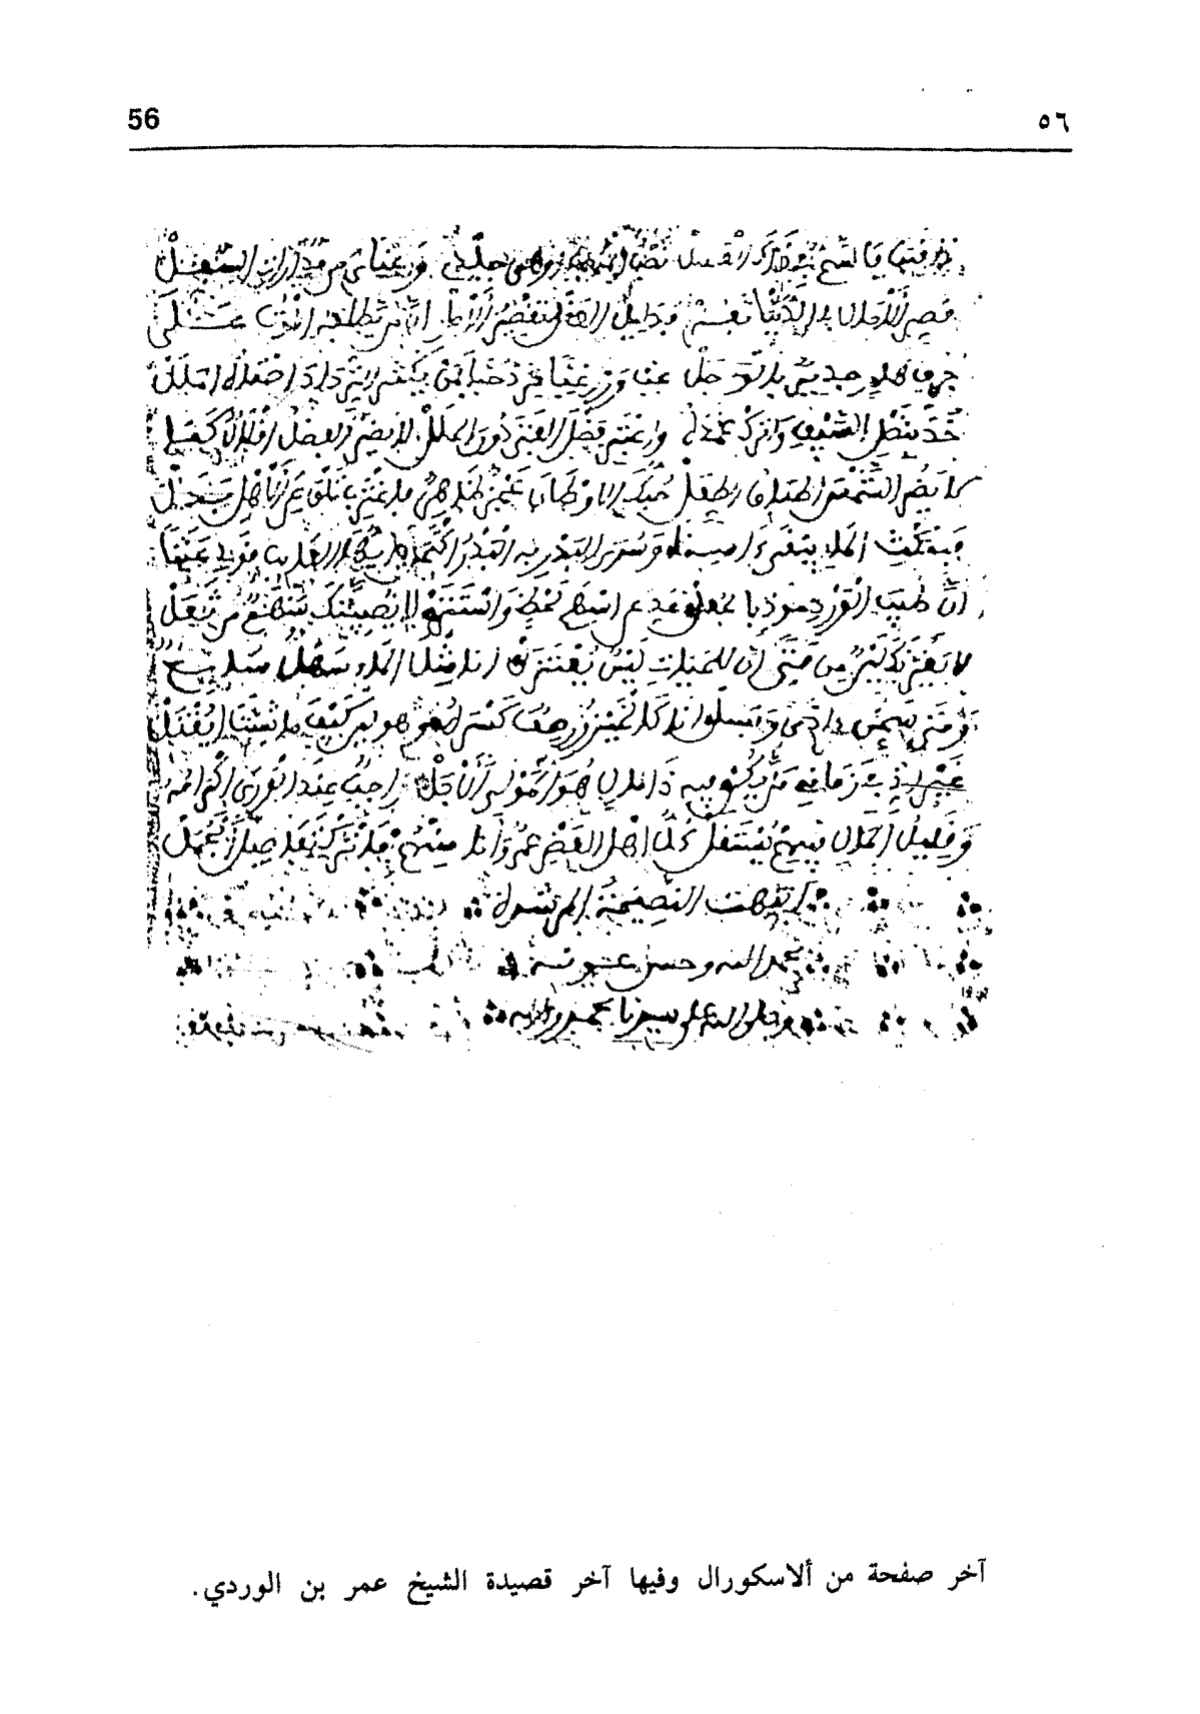 56
٥٦
وعنائي من مداراة السفل
قصر الآمال في الدنيا تفز فدليل العقل تقصير الأمل إن من يطلبه الموت على
جدير بالوجل غب وزر غبا تزد حبا فمن يكثر الترداد أضناه الملل
خذ بنصل السيف واترك غمده واعتبر فضل الفتى دون الحلل لا يضر الفضل إقلال كما
لا يضر الشمس إطباق الطفل حبك الاوطان عجز ظاهر فاغترب تلق عن الأهل بدل
فبمكث الماء يبقى آسنا وسرى البدر به البدر اكتمل أيها العائب قولي عبثا
إن طيب الورد موذ بالجعل عد عن أسهم لفظي واستتر لا يصيبنك سهم من ثعل
لا يغرنك لين من فتى إن للحيات لين يعتزل أنا مثل الماء سهل سايغ
ومتى سخن آذى وقتل أنا كالخيزور صعب كسره وهو لدن كيف ما شئت انفتل
غير أني في زمان من يكن فيه ذا مال هو المولى الأجل واجب عند الورى إكرامه
وقليل المال فيهم يستقل كل أهل العصر غمر وأنا منهم فاترك تفاصيل الجمل
انتهت النصيحة
بحمد الله وحسن عونه
وصلى الله على سيدنا محمد وآله
آخر صفحة من ألاسكورال وفيها آخر قصيدة الشيخ عمر بن الوردي.